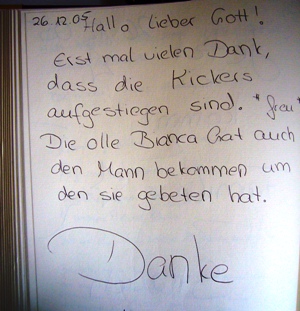 26.12.05 Hallo lieber Gott!
Erst mal vielen Dank,
dass die Kickers
aufgestiegen sind. *freu*
Die olle Bianca hat auch
den Mann bekommen um
den sie gebeten hat.
Danke